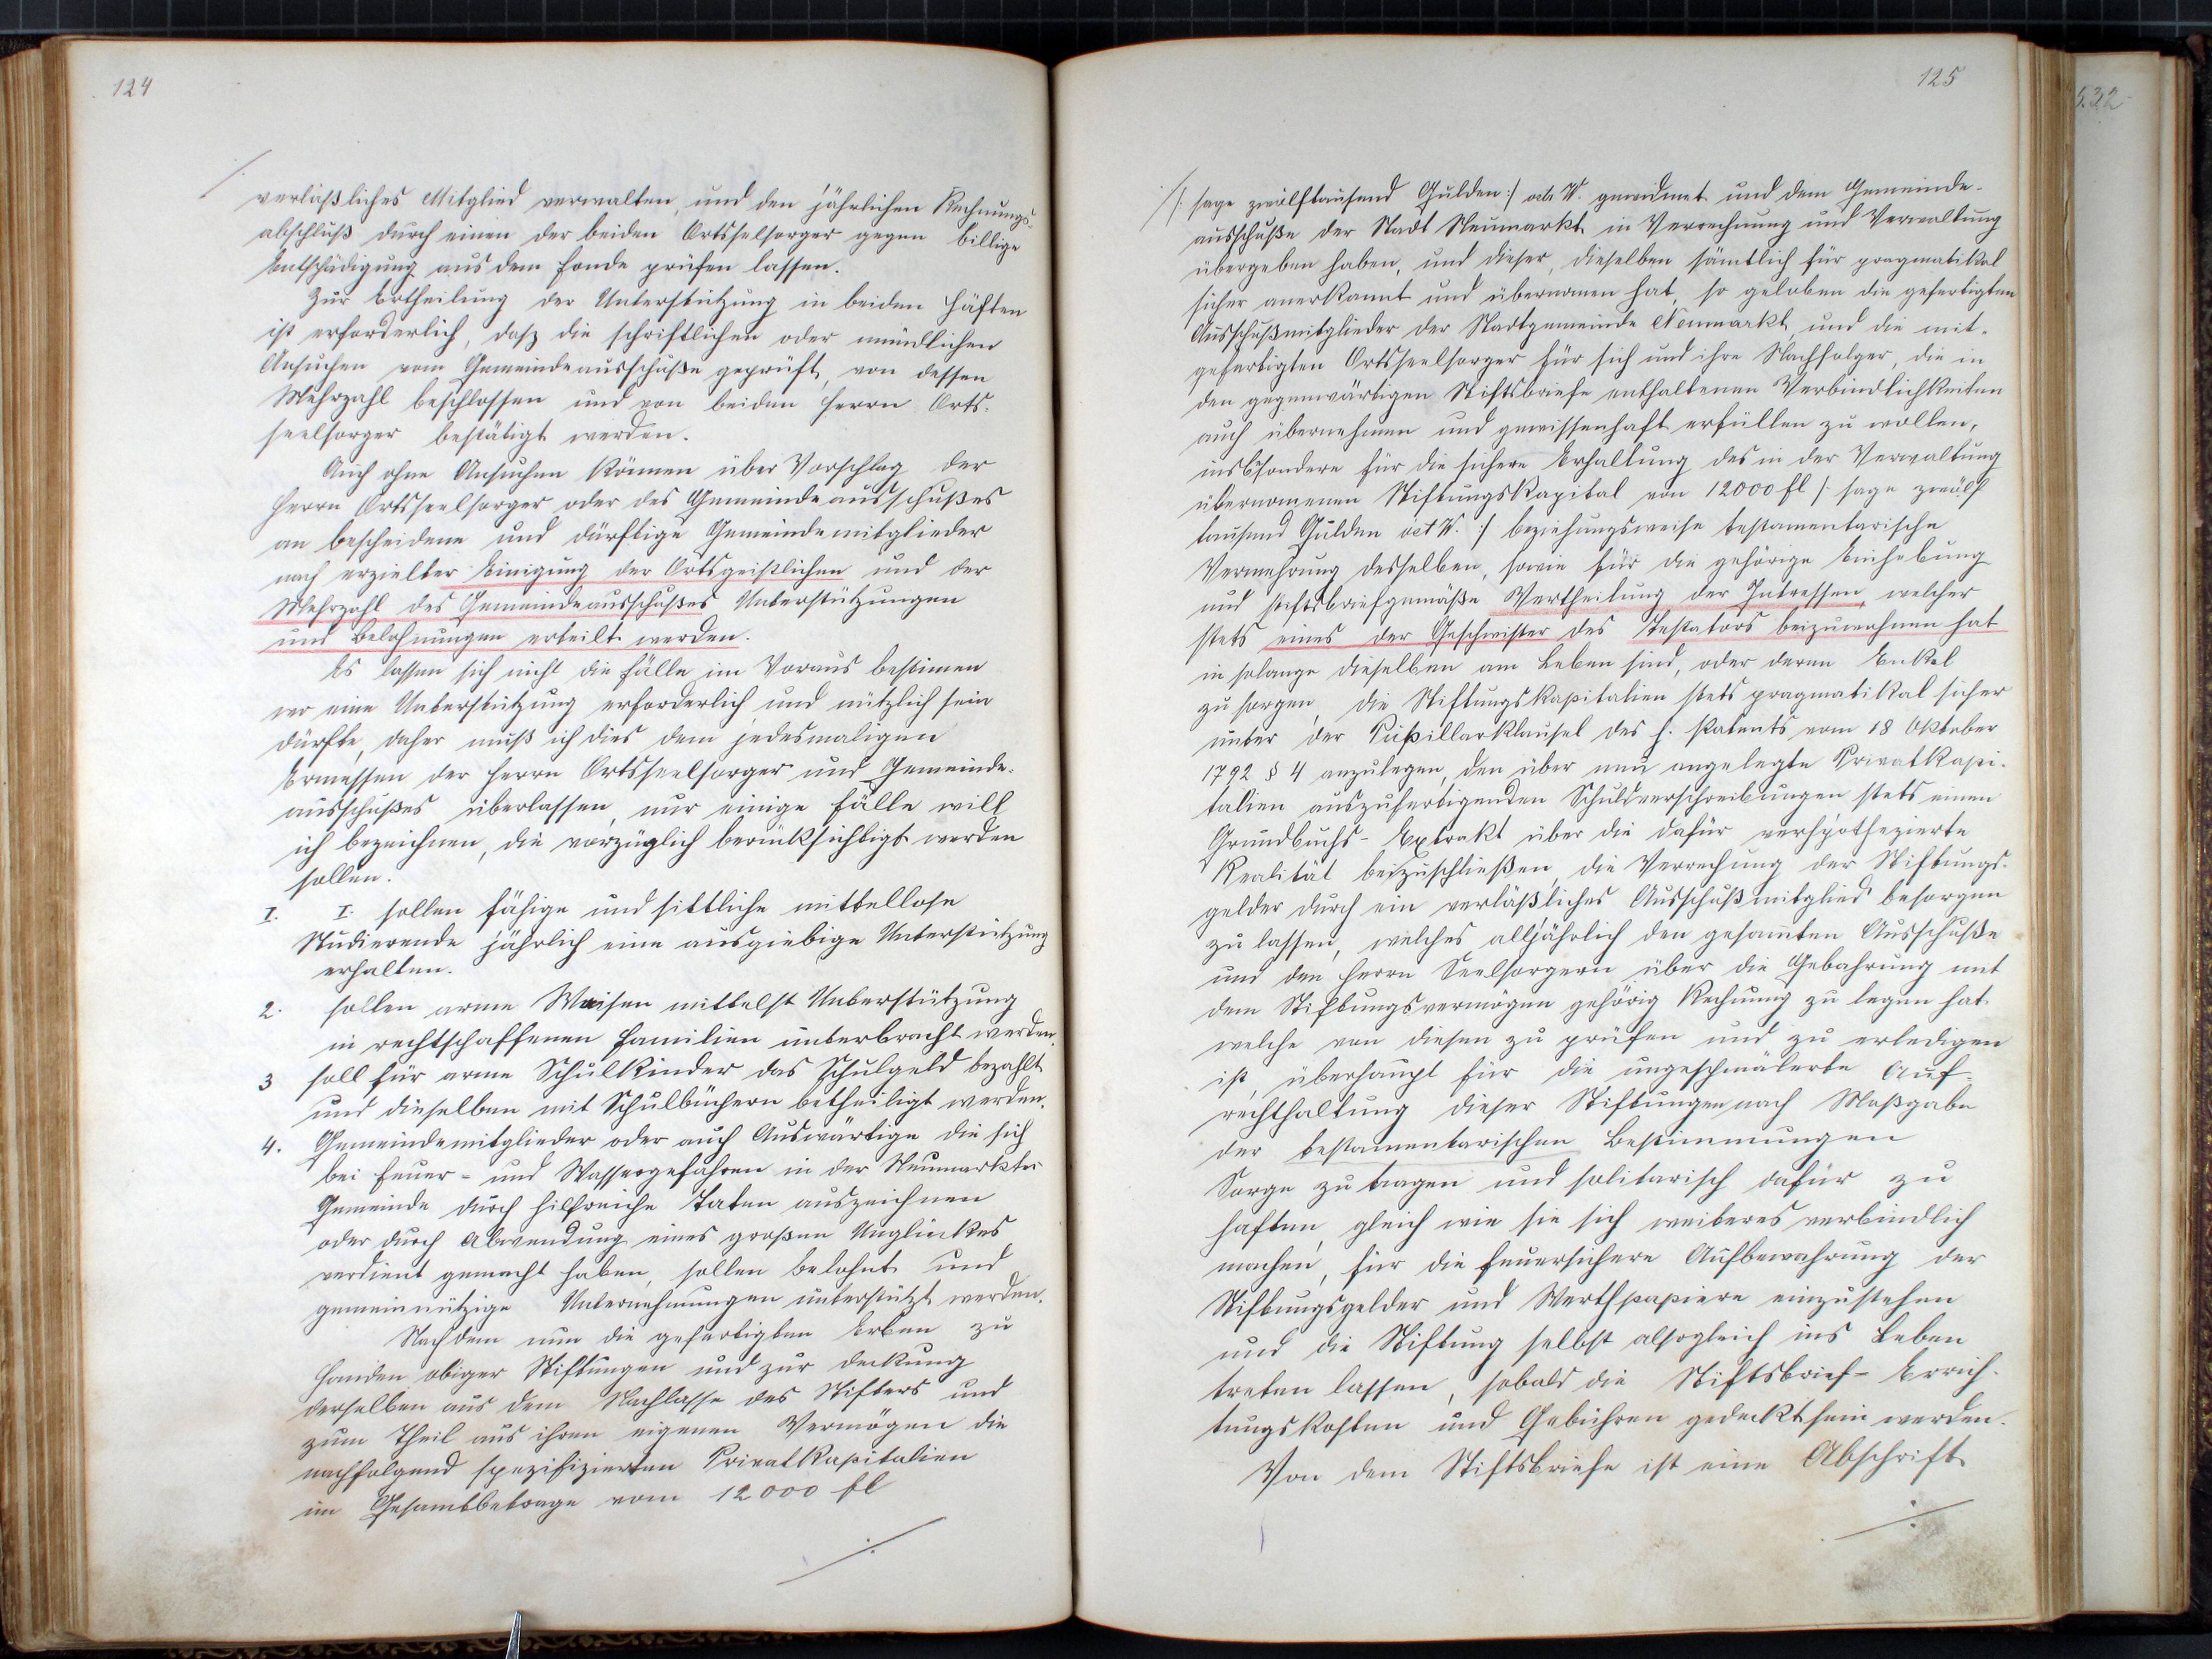 124
verläßliches Mitglied verwalten, und den jährlichen Rechnungs-
abschluß durch einen der beiden Ortsselsorger gegen billige
Entschädigung aus dem Fonde prüfen lassen.
Zur Ertheilung der Unterstützung in beiden Häften
ist erforderlich, daß die schriftlichen oder mündlichen
Ansuchen vom Gemeindeausschuße geprüft, von dessen
Mehrzahl beschlossen und von beiden Herrn Orts-
seelsorger bestätigt werden.
Auch ohne Ansuchen können über Vorschlag der
Herrn Ortsseelsorger oder des Gemeindeausschußes
an bescheidene und dürftige Gemeindemitglieder
nach erzielter Einigung der Ortsgeistlichen und der
Mehrzahl des Gemeindeausschußes Unterstützungen
und Belohnungen erteilt werden.
Es lassen sich nicht die Fälle im Voraus bestimen
wo eine Unterstützung erforderlich und nützlich sein
dürfte, daher muß ich dies dem jedesmaligen
Ermessen der Herrn Ortsseelsorger und Gemeinde-
ausschußes überlassen, nur einige Fälle will
ich bezeichnen, die vorzüglich berücksichtigt werden
sollen.
I. I. sollen fähige und sittliche mittellose
Studierende jährlich eine ausgiebige Unterstützung
erhalten.
2. sollen arme Waisen mittelst Unterstützung
in rechtschaffenen Familien unterbracht werden.
3 soll für arme Schulkinder das Schulgeld bezahlt
und dieselben mit Schulbüchern betheiligt werden.
4. Gemeindemitglieder oder auch Auswärtige die sich
bei Feuer- und Wassergefahren in der Neumarkter
Gemeinde durch hilfreiche Taten auszeichnen
oder durch Abwendung eines großen Unglückes
verdient gemacht haben, sollen belohnt und
gemeinnützige Unternehmungen unterstützt werden.
Nachdem nun die gefertigten Erben zu
Handen obiger Stiftungen und zur Deckung
derselben aus dem Nachlasse des Stifters und
zum Theil aus ihren eigenen Vermögen die
nachfolgend spezifizierten Privatkapitalien
im Gesamtbetrage vom 12000 fl
./.
125
532
/: sage zwölftausend Gulden :/ öste W. gewidmet und dem Gemeinde-
ausschuße der Stadt Neumarkt in Verrechnung und Verwaltung
übergeben haben, und dieser, dieselben sämtlich für pragmatikal
sicher anerkannt und übernomen hat, so geloben die gefertigten
Ausschußmitglieder der Stadtgemeinde Neumarkt, und die mit-
gefertigten Ortsseelsorger für sich und ihre Nachfolger, die in
den gegenwärtigen Stiftsbriefe enthaltenen Verbindlichkeiten
auch übernehmen und gewissenhaft erfüllen zu wollen,
insbesondere für die sichere Erhaltung des in der Verwaltung
übernomenen Stiftungskapital von 12000 fl /: sage zwölf
tausend Gulden öst W. :/ beziehungsweise testamentarische
Vermehrung desselben, sowie für die gehörige Einhebung
und stiftsbriefgemäße Vertheilung der Intressen, welcher
stets eines der Geschwister des Testators beizuwohnen hat
in solange dieselben am Leben sind, oder deren Enkel
zu sorgen, die Stiftungskapitalien stets pragmatikal sicher
unter der Pupillarklausel des h. Patents vom 18 Oktober
1792 § 4 anzulegen, den über neu angelegte Privatkapi-
talien auszufertigenden Schuldverschreibungen stets einen
Grundbuchs-Extrakt über die dafür verhypothezierte
Realität beizuschließen, die Verrechung der Stiftungs-
gelder durch ein verläßliches Ausschußmitglied besorgen
zu lassen, welches alljährlich den gesamten Ausschuße
und den Herrn Seelsorgern über die Gebahrung mit
dem Stiftungsvermögen gehörig Rechnung zu legen hat
welche von diesen zu prüfen und zu erledigen
ist, überhaupt für die ungeschmälerte Auf-
rechthaltung dieser Stiftungen nach Maßgabe
der testamentarischen Bestimmungen
Sorge zu tragen und solitarisch dafür zu
haften, gleich wie sie sich weiteres verbindlich
machen, für die feuersichere Aufbewahrung der
Stiftungsgelder und Werthpapiere einzustehen
und die Stiftung selbst alsogleich ins Leben
treten lassen, sobald die Stiftsbrief-Errich-
tungskosten und Gebühren gedeckt sein werden.
Von dem Stiftsbriefe ist eine Abschrift
./.